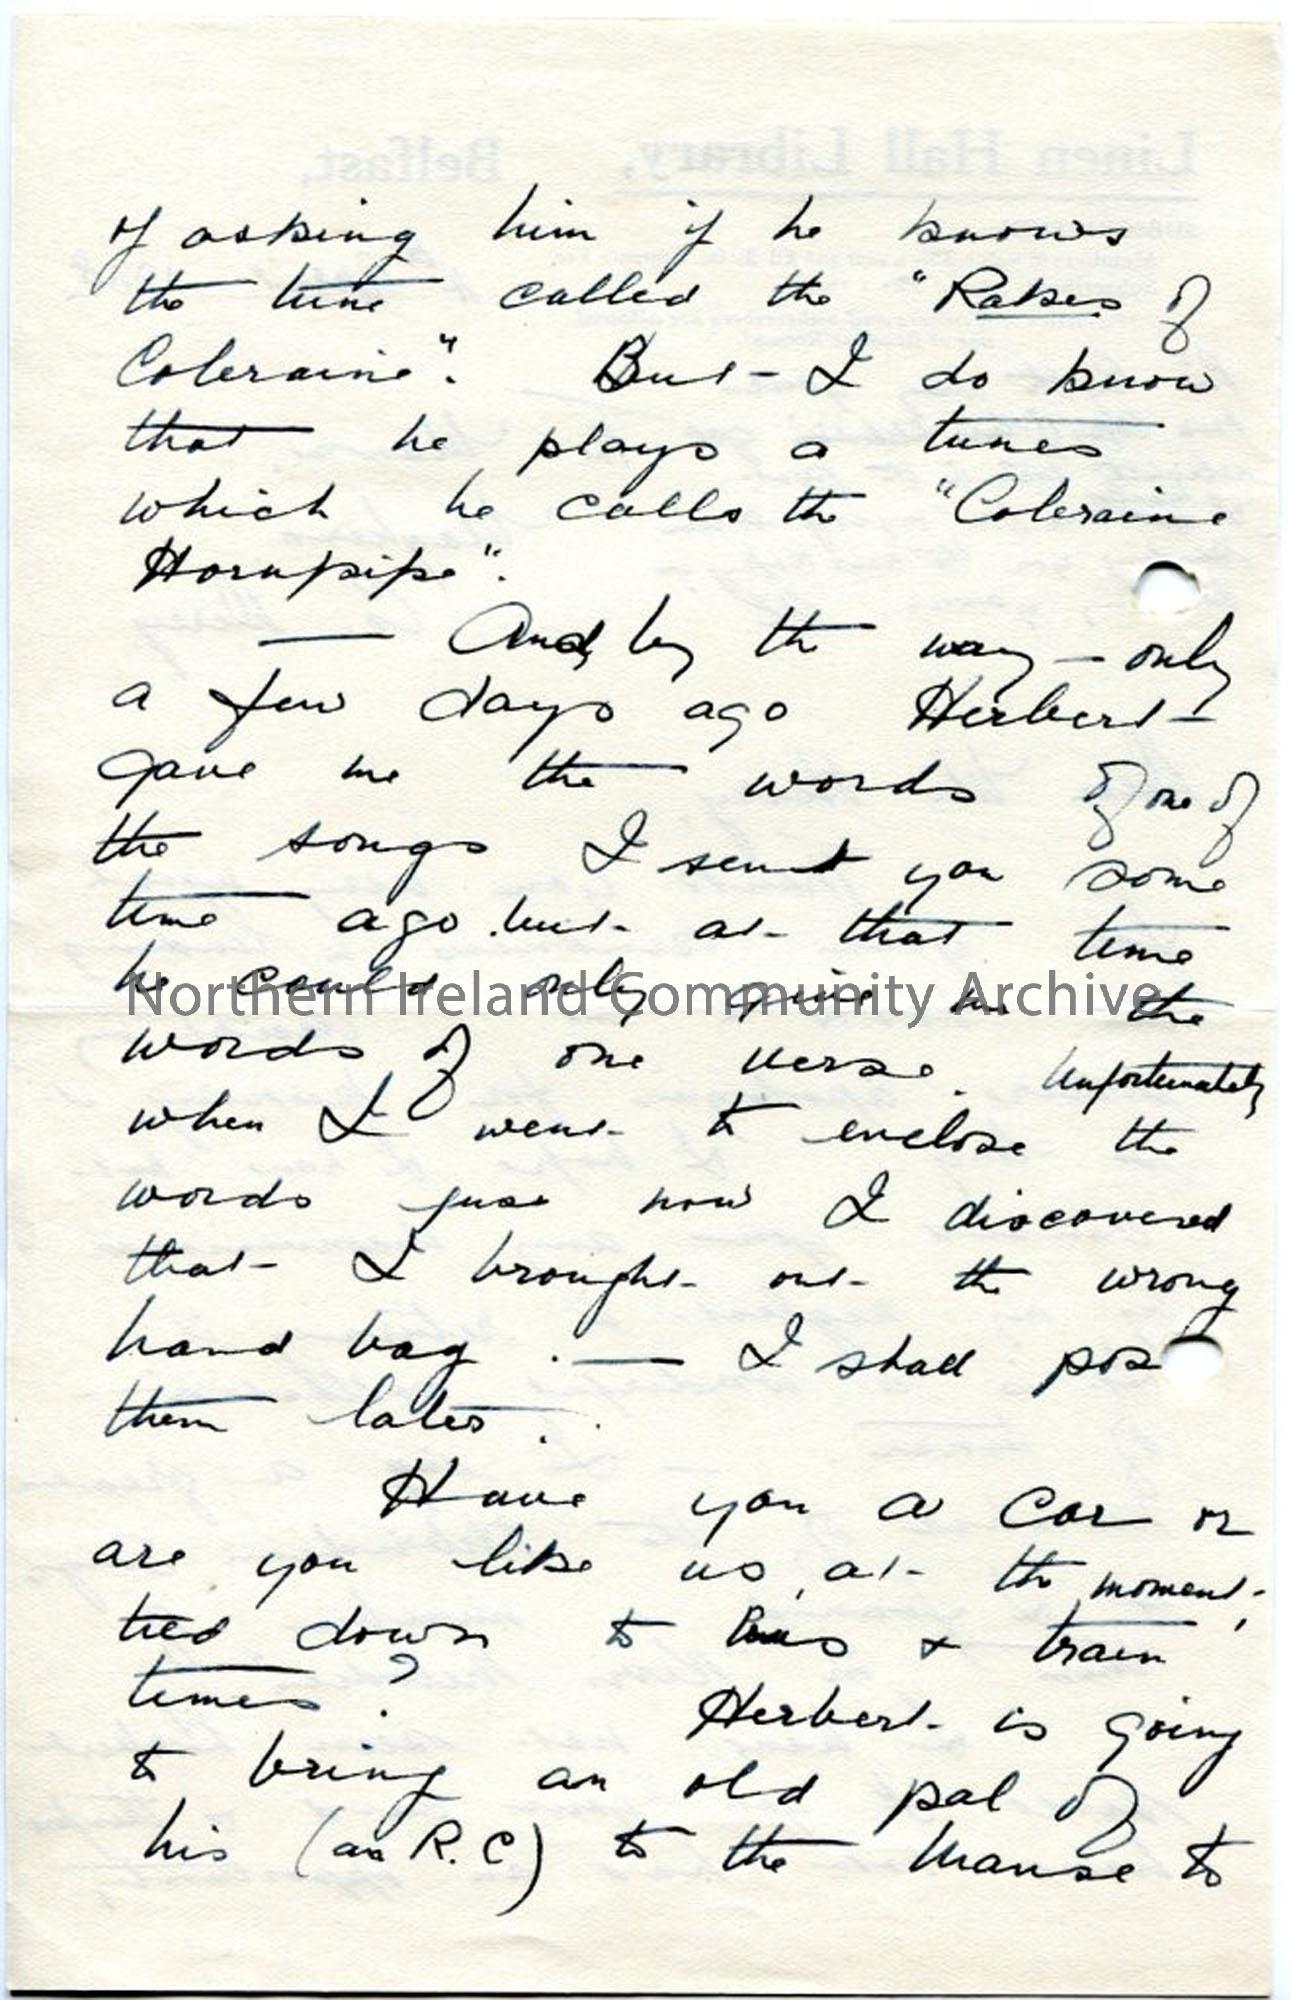 of asking him if he knows
the tune called the "Rakes of
Coleraine". But I do know
that he plays a tunes
which he calls the "Coleraine
Hornpipe".
— And, by the way — only
a few days ago Herbert
gave me the words of one of
the songs I sent you some
time ago but at that time
he could only give me the
Northern Ireland Community Archive
words of one verse. Unfortunately
when I went to enclose the
words just now I discovered
that I brought out the wrong
hand bag. — I shall pos
them later.
Have you a car or
are you like us, at the moment,
tied down to bus & train
times? Herbert is going
to bring an old pal of
his (an R.C) to the Manse to